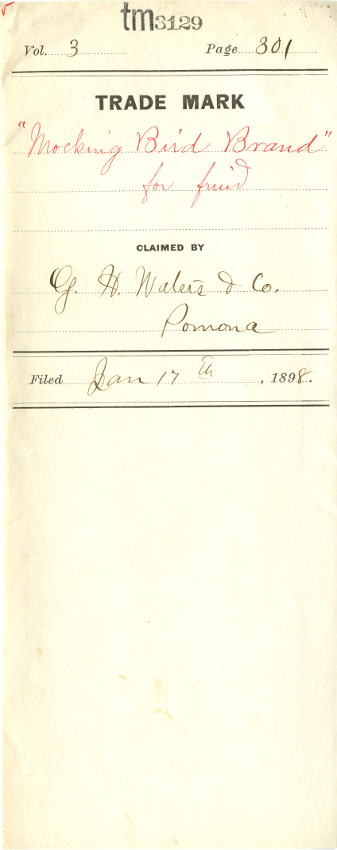 tm3129
Vol. 3 Page 301
TRADE MARK
"Mocking Bird Brand"
for fruit
CLAIMED BY
G. H. Waters & Co.
Pomona
Filed Jan 17th, 1898.